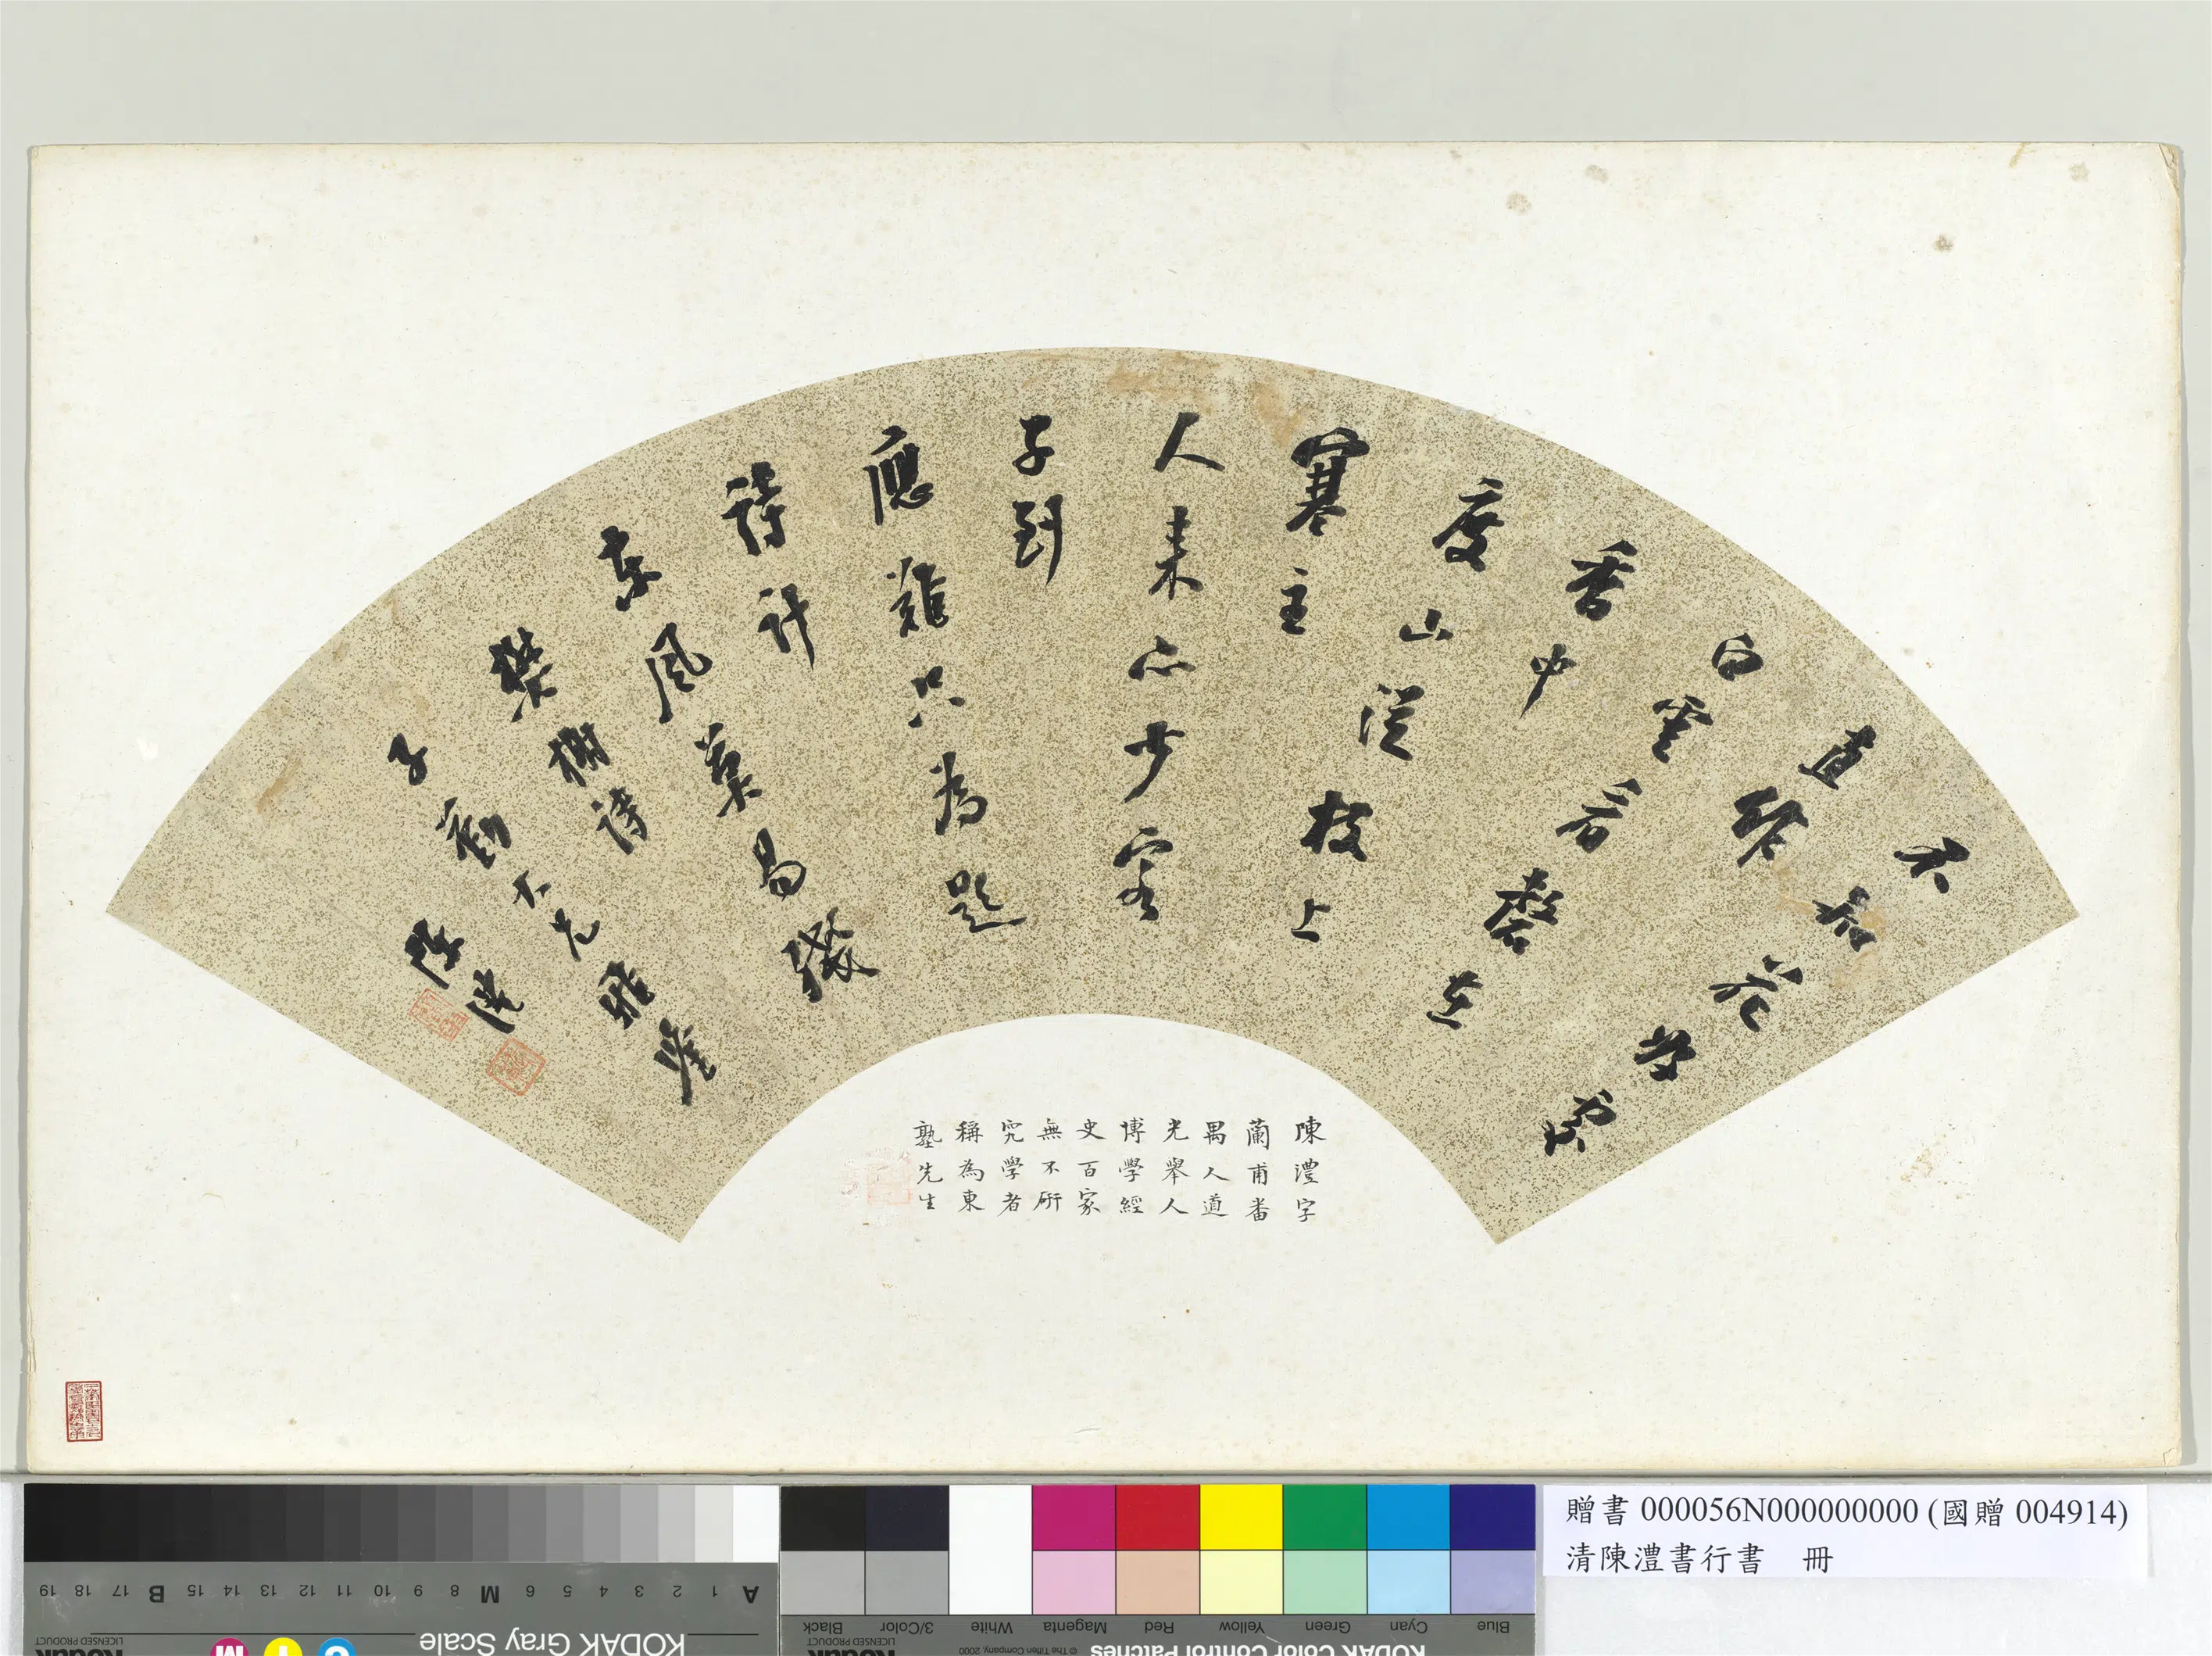 不知花幾處
直作
白雲看磬在
香中
度山從枝上
寒主
人來亦少客
子到
應難只為題
詩計
東風莫易殘
樊榭詩
子勤大兄雅鑒
陳澧
陳澧字
蘭甫番
禺人道
光舉人
博學經
史百家
無不研
究學者
稱為東
塾先生
贈書 000056N000000000 (國贈 004914)
清陳澧書行書 冊
A 1 2 3 4 5 6 M 8 9 10 11 12 13 14 15 B 17 18 19
KODAK Gray Scale
Kodak
LICENSED PRODUCT
C Y M
Blue Cyan Green Yellow Red Magenta White 3/Color Black
KODAK Color Control Patches
© The Tiffen Company, 2000
Kodak
LICENSED PRODUCT